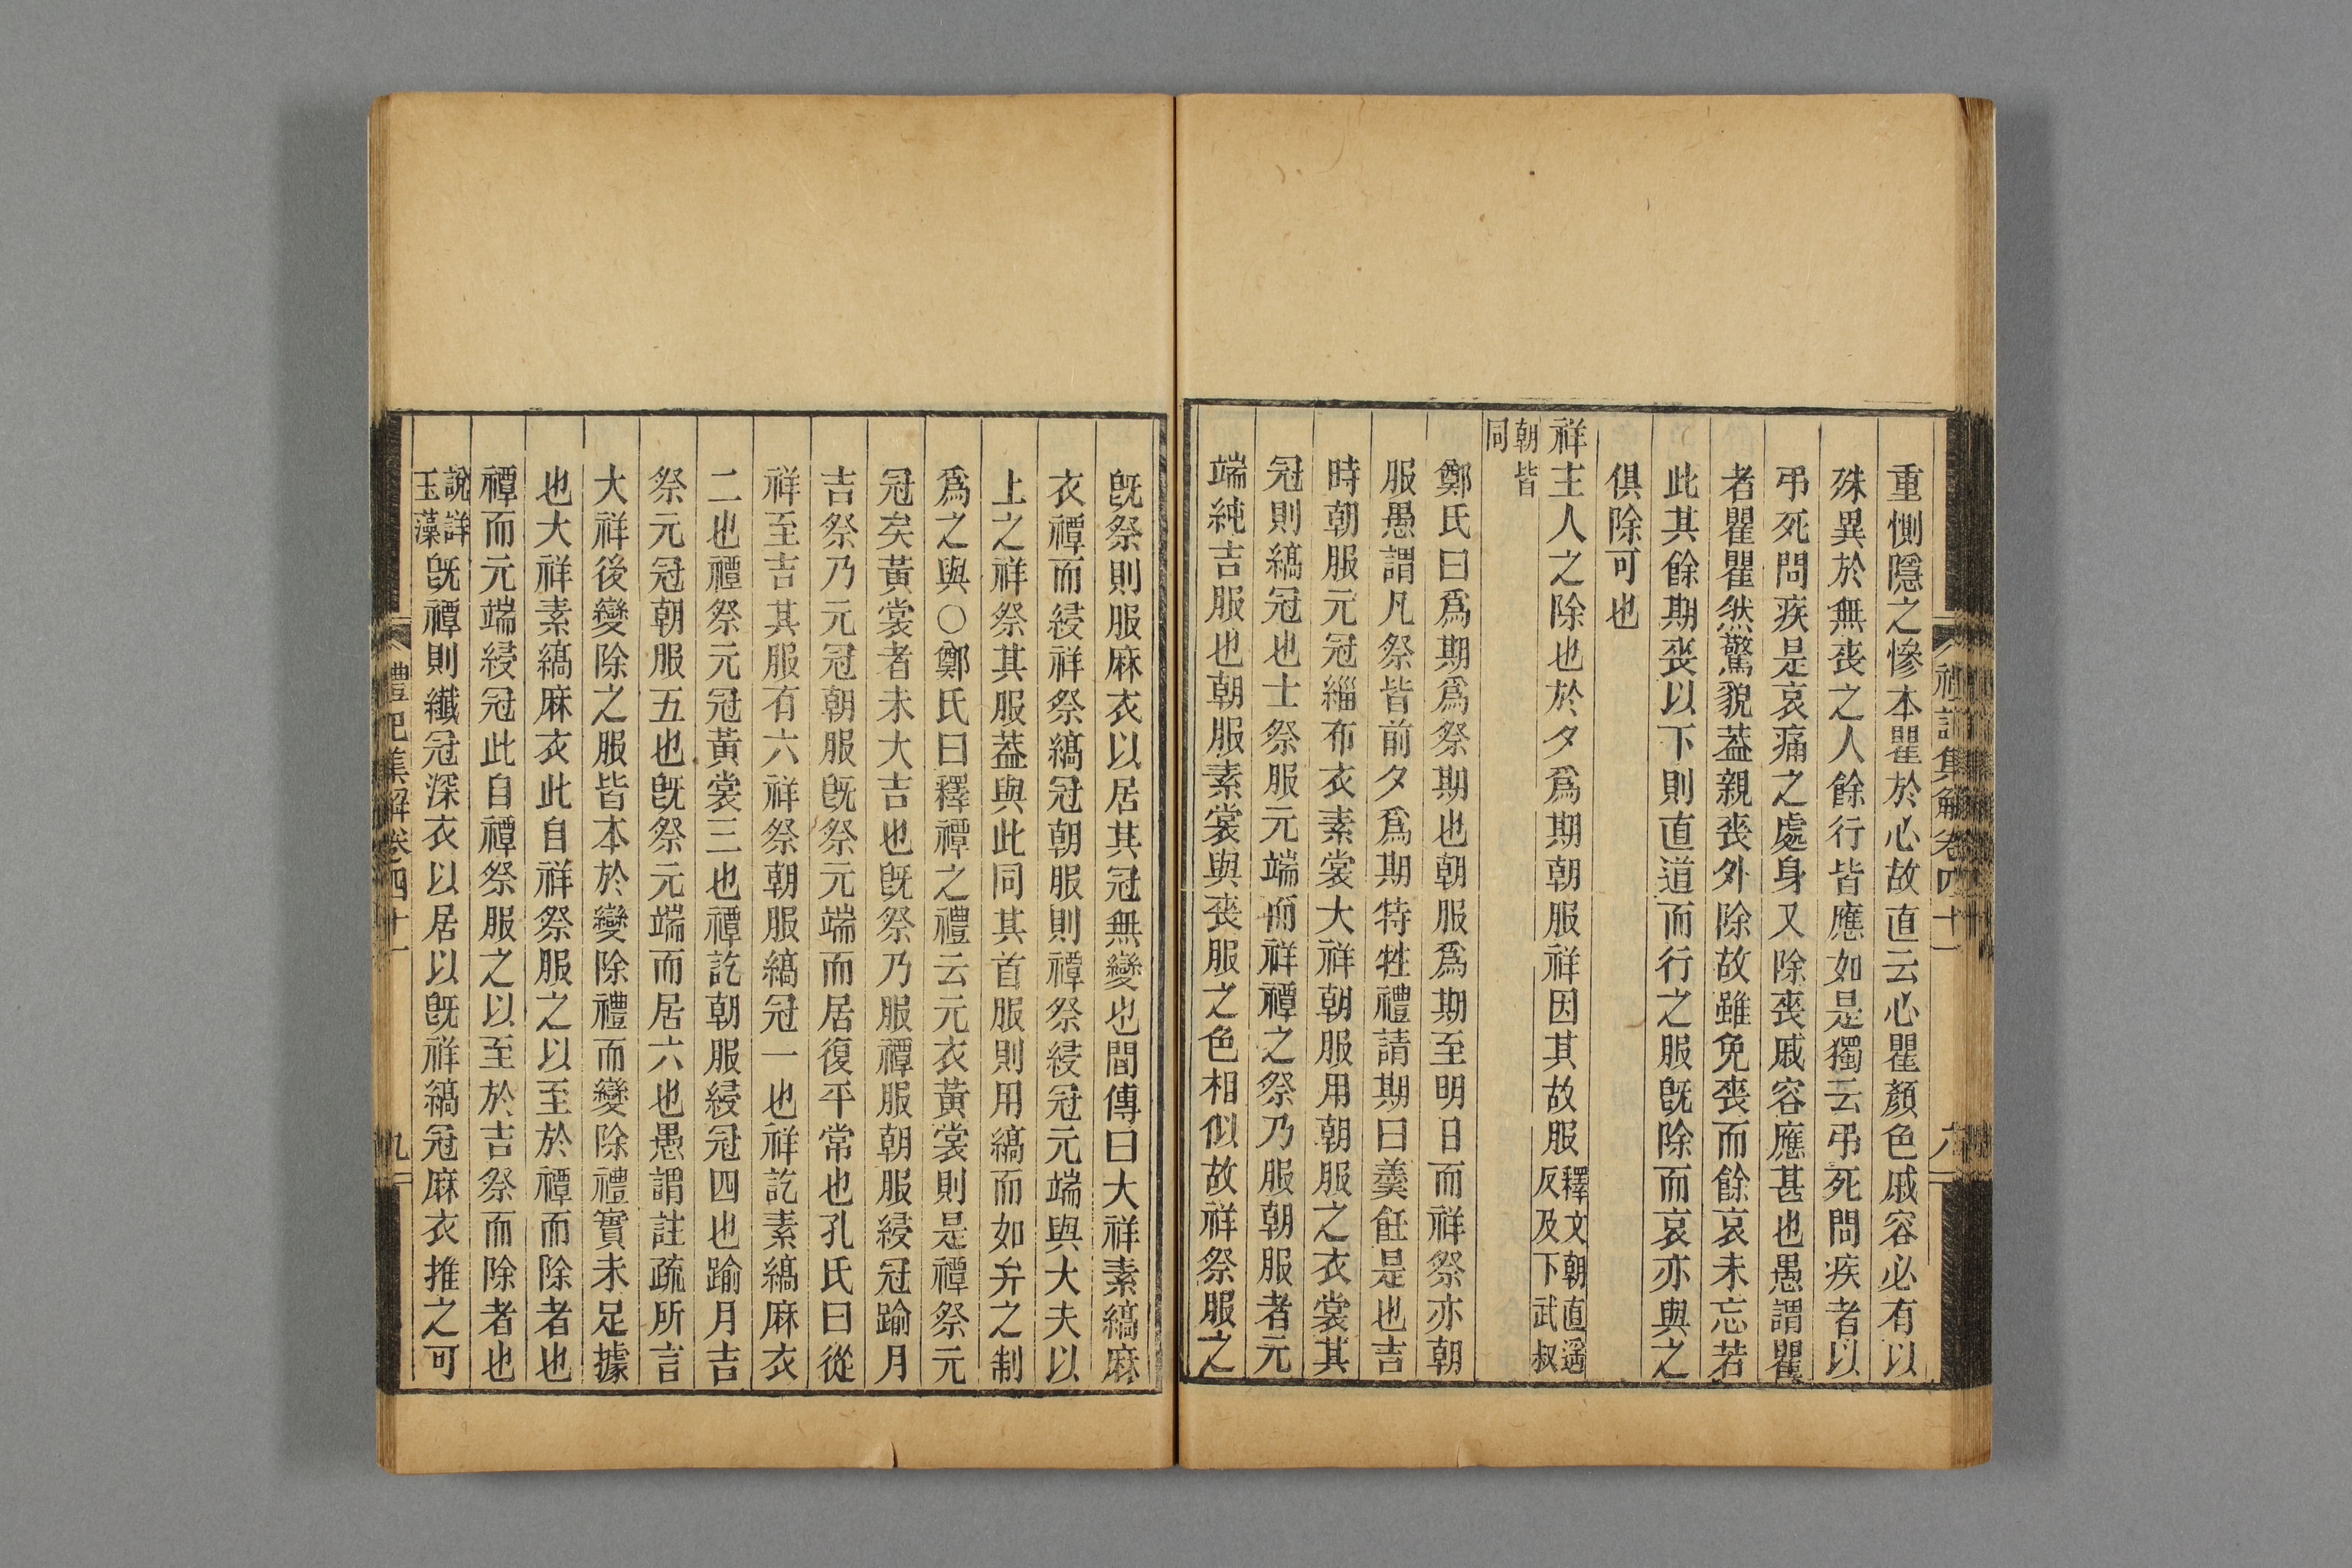 禮記集解卷四十一
八
重惻隱之慘本瞿於心故直云心瞿顏色戚容必有以
殊異於無喪之人餘行皆應如是獨云弔死問疾者以
弔死問疾是哀痛之處身又除喪戚容應甚也愚謂瞿
者瞿瞿然驚貌葢親喪外除故雖免喪而餘哀未忘若
此其餘期喪以下則直道而行之服旣除而哀亦與之
俱除可也
祥主人之除也於夕爲期朝服祥因其故服釋文朝直遥反及下武叔
朝皆同
鄭氏曰爲期爲祭期也朝服爲期至明日而祥祭亦朝
服愚謂凡祭皆前夕爲期特牲禮請期曰羹飪是也吉
時朝服元冠緇布衣素裳大祥朝服用朝服之衣裳其
冠則縞冠也士祭服元端而祥禫之祭乃服朝服者元
端純吉服也朝服素裳與喪服之色相似故祥祭服之
旣祭則服麻衣以居其冠無變也間傳曰大祥素縞麻
衣禫而綅祥祭縞冠朝服則禫祭綅冠元端與大夫以
上之祥祭其服葢與此同其首服則用縞而如弁之制
爲之與○鄭氏曰釋禫之禮云元衣黃裳則是禫祭元
冠矣黃裳者未大吉也旣祭乃服禫服朝服綅冠踰月
吉祭乃元冠朝服旣祭元端而居復平常也孔氏曰從
祥至吉其服有六祥祭朝服縞冠一也祥訖素縞麻衣
二也禫祭元冠黃裳三也禫訖朝服綅冠四也踰月吉
祭元冠朝服五也旣祭元端而居六也愚謂註疏所言
大祥後變除之服皆本於變除禮而變除禮實未足據
也大祥素縞麻衣此自祥祭服之以至於禫而除者也
禫而元端綅冠此自禫祭服之以至於吉祭而除者也
說詳玉藻旣禫則纖冠深衣以居以旣祥縞冠麻衣推之可
禮記集解卷四十一
九